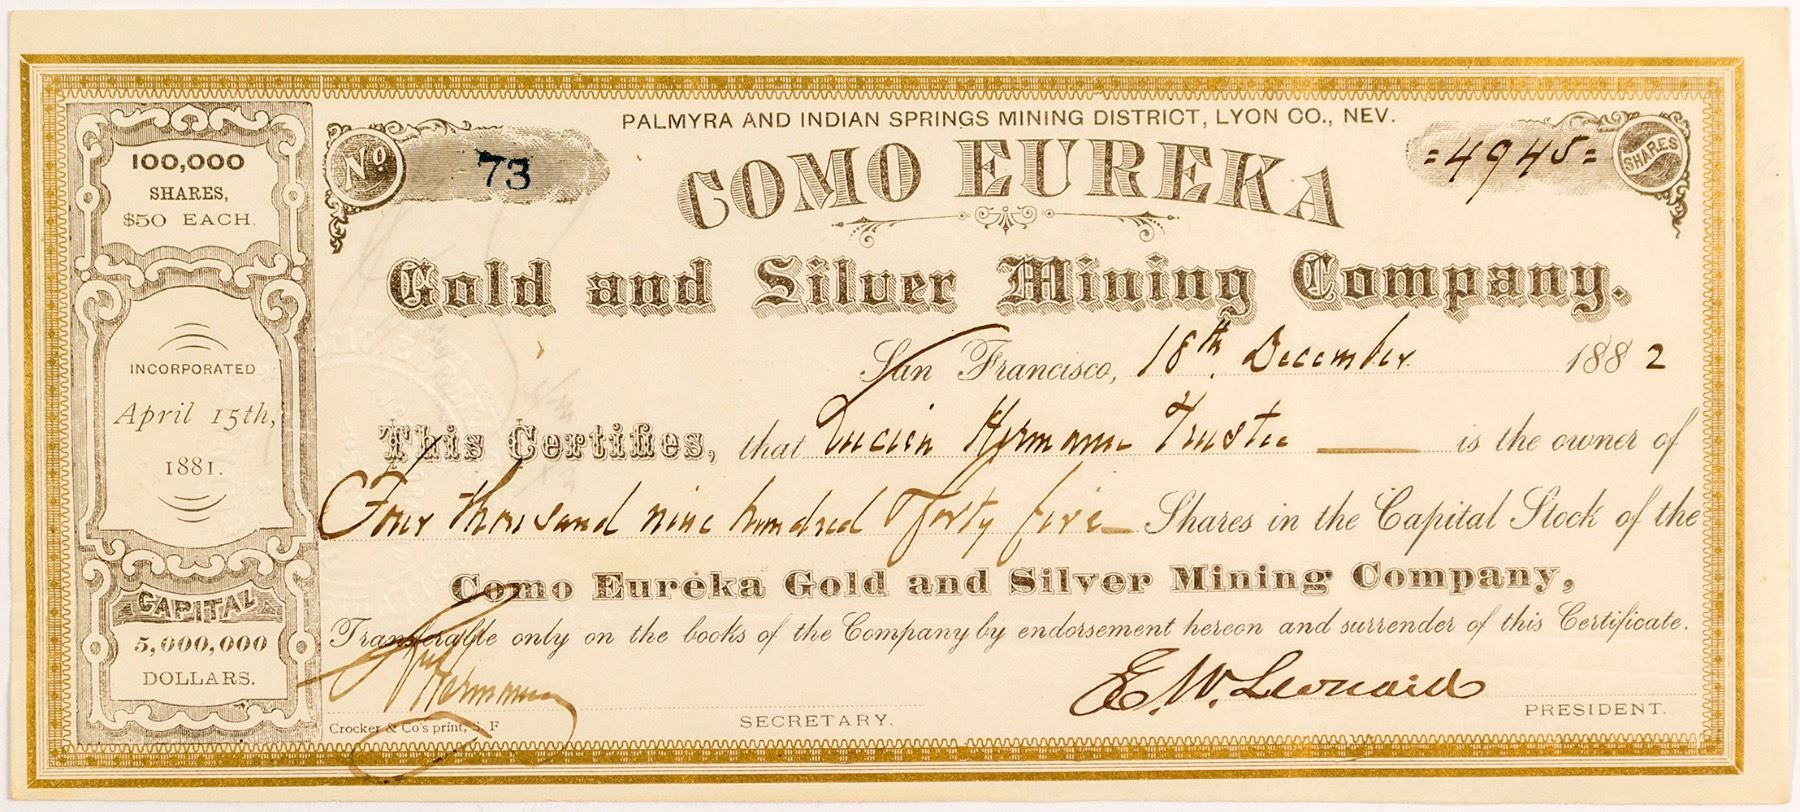 PALMYRA AND INDIAN SPRINGS MINING DISTRICT, LYON CO., NEV.
No 73
COMO EUREKA
=4945= SHARES
Gold and Silver Mining Company.
100,000
SHARES,
$50 EACH.
INCORPORATED
April 15th,
1881.
CAPITAL
5,000,000
DOLLARS.
San Francisco, 18th December 1882
This Certifies, that Lucien Hermann Trustee is the owner of
Four thousand nine hundred & forty five Shares in the Capital Stock of the
Como Eureka Gold and Silver Mining Company,
Transferable only on the books of the Company by endorsement hereon and surrender of this Certificate.
Hermann
SECRETARY.
E. W. Leonard
PRESIDENT.
Crocker & Co's print, S. F